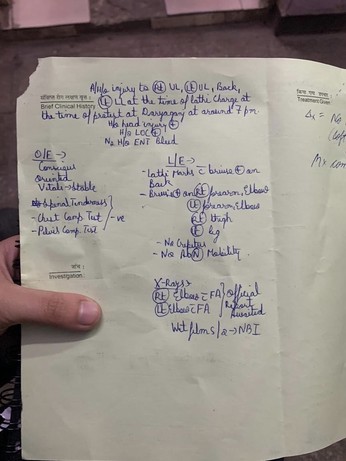 A/H/o injury to Rt UL, Lt UL, Back,
Lt LL at the time of lathi Charge at
Brief Clinical History
the time of protest at Daryaganj at around 7 pm.
H/o head injury +
H/o LOC +
No H/o ENT bleed
Treatment Given
O/E →
Conscious
Oriented
Vitals → stable
Spinal Tenderness
- Chest Comp. Test
- Pelvic Comp. Test
-ve
L/E →
- Lathi Marks c̄ bruise + on
Back
- Bruise + on Rt forearm, Elbow
Lt forearm, Elbow
Rt thigh
Lt leg
- No Crepitus
- No AbN Mobility
जांच :
Investigation
X-Rays →
Rt Elbow c̄ FA
Lt Elbow c̄ FA
Official
Report
Awaited
Wet films /s/o → NBI